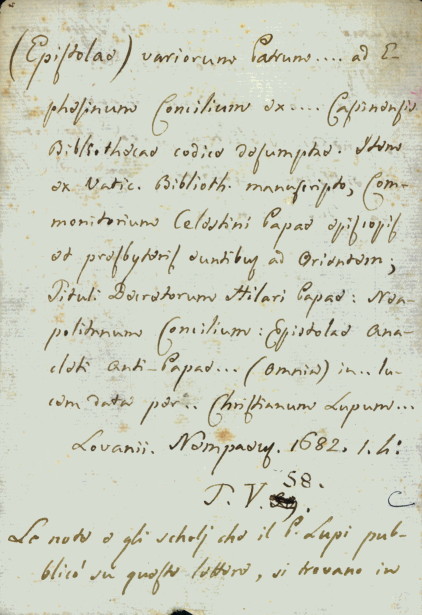 (Epistolae) variorum Patrum.... ad E-
phesinum Concilium ex.... Casinensis
Bibliothecae codice desumptae. Item
ex Vatic. Biblioth. manuscripto, Com-
monitorium Celestini Papae episcopis
et presbyteris euntibus ad Orientem;
Tituli Decretorum Hilari Papae: Nea-
politanum Concilium: Epistolae Ana-
cleti Anti-Papae... (Omnia) in.. lu-
cem data per.. Christianum Lupum...
Lovanii. Nempaeus. 1682. 1. h:
T. V. 58.
Le note e gli scholj che il P. Lupi pub-
blicò su queste lettere, si trovano in